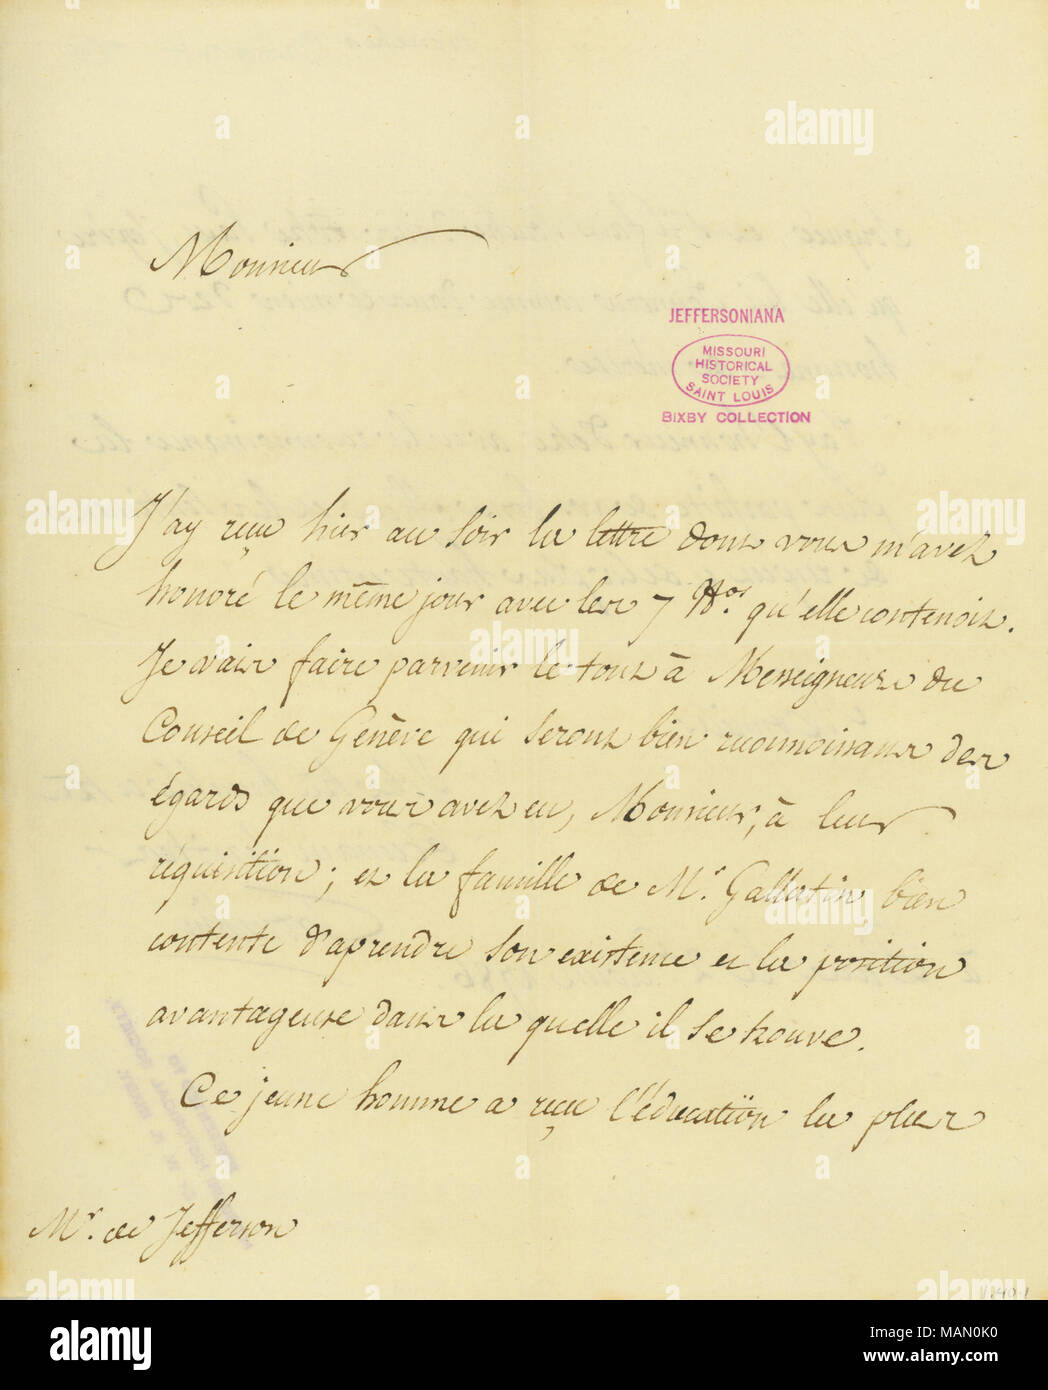 Monsieur
JEFFERSONIANA
MISSOURI
HISTORICAL
SOCIETY
SAINT LOUIS
BIXBY COLLECTION
J'ay reçu hier au soir la lettre dont vous m'avez
honoré le même jour avec les 7 Nos. qu'elle contenoit.
Je vais faire parvenir le tout à Messeigneurs du
Conseil de Genève qui seront bien reconnoissans des
égards que vous avez eu, Monsieur, à leur
réquisitïon; et la famille de Mr. Gallatin bien
contente d'aprendre son existence et la position
avantageuse dans la quelle il se trouve.
Ce jeune homme a reçu l'éducatïon la plus
Mr. de Jefferson
alamy
Image ID: MAN0K0
www.alamy.com